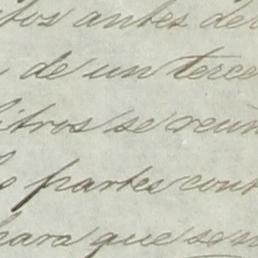 tos antes del
de un terce
litros se reun
partes cont
para que sem